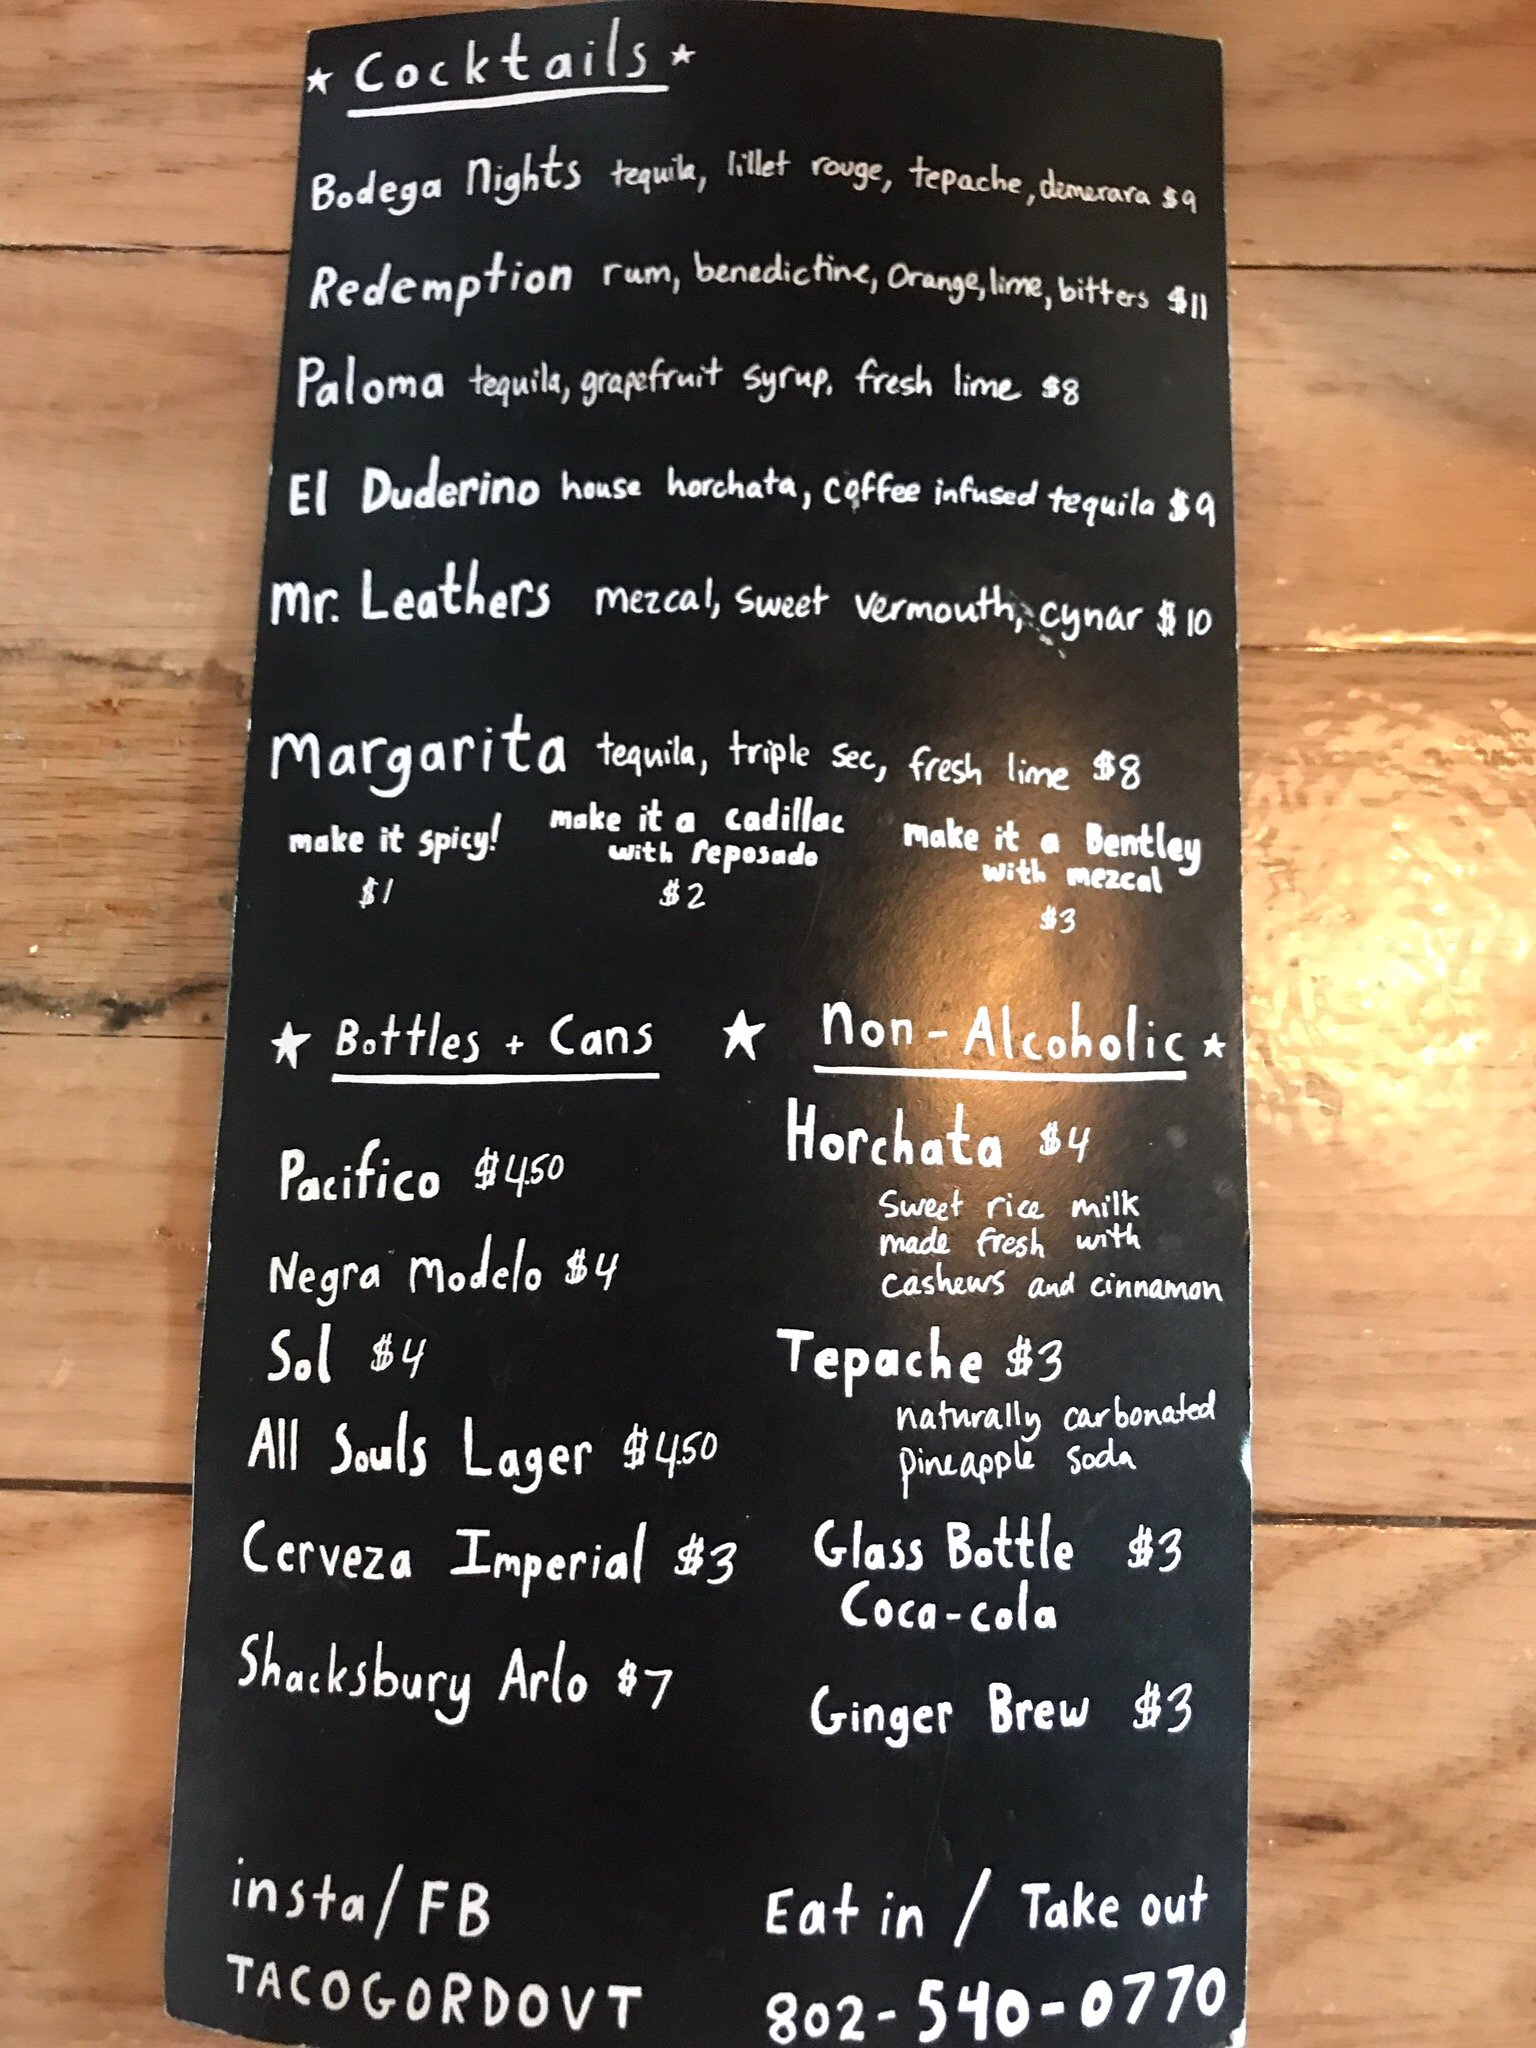 ★ Cocktails ★
Bodega Nights tequila, lillet rouge, tepache, demerara $9
Redemption rum, benedictine, Orange, lime, bitters $11
Paloma tequila, grapefruit syrup, fresh lime $8
El Duderino house horchata, coffee infused tequila $9
Mr. Leathers mezcal, sweet vermouth, cynar $10
Margarita tequila, triple sec, fresh lime $8
make it spicy!
$1
make it a cadillac
with reposado
$2
make it a Bentley
with mezcal
$3
★ Bottles + Cans ★
Pacifico $4.50
Negra Modelo $4
Sol $4
All Souls Lager $4.50
Cerveza Imperial $3
Shacksbury Arlo $7
Non-Alcoholic ★
Horchata $4
Sweet rice milk
made fresh with
cashews and cinnamon
Tepache $3
naturally carbonated
pineapple soda
Glass Bottle $3
Coca-cola
Ginger Brew $3
insta/FB
TACOGORDOVT
Eat in / Take out
802-540-0770